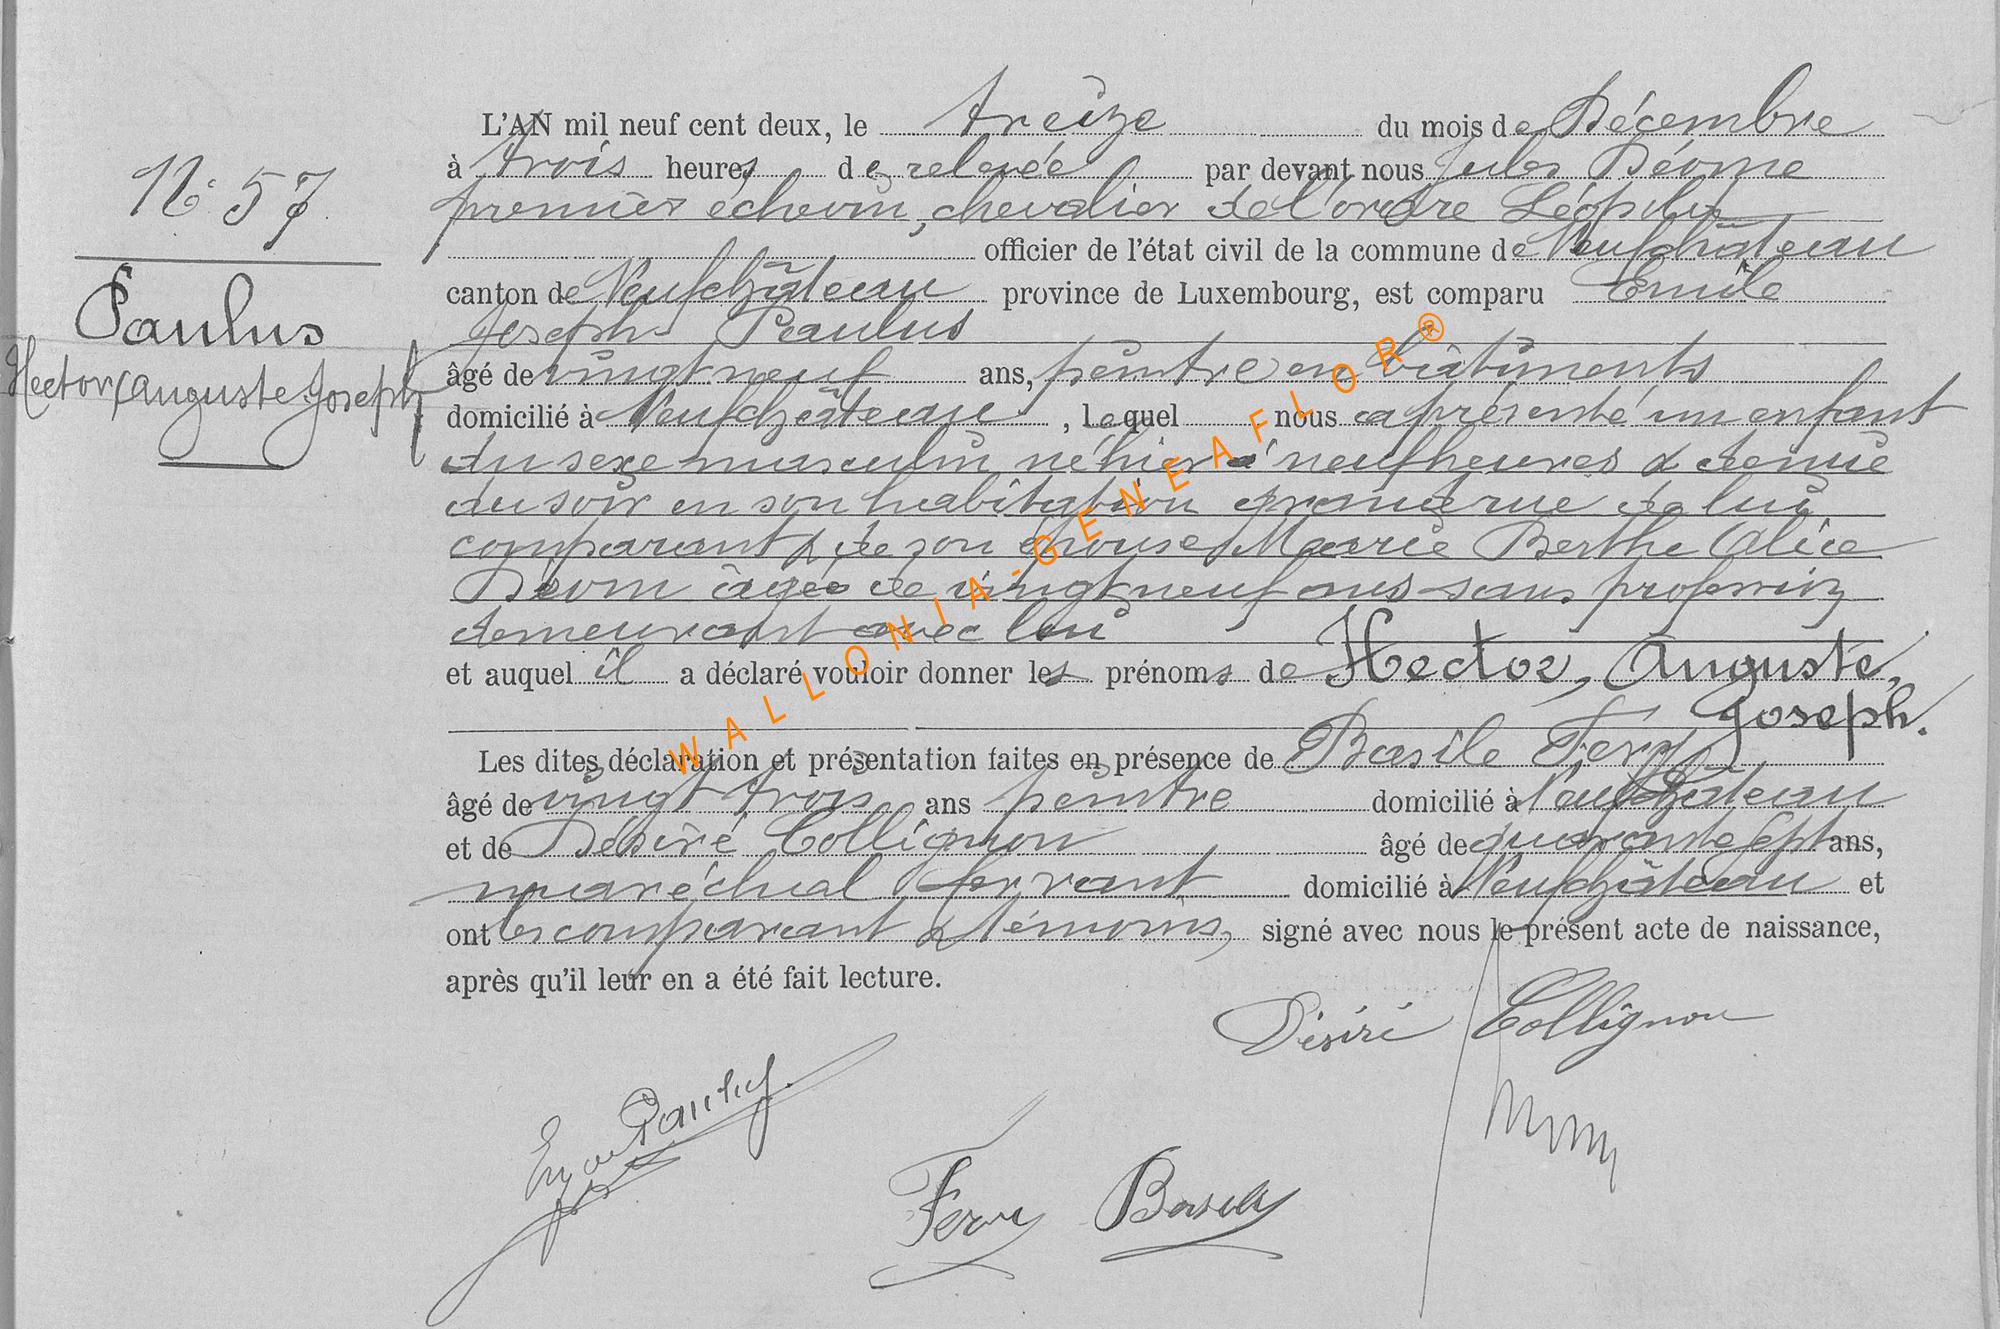 N° 57
Paulus
Hector, Auguste Joseph
L'AN mil neuf cent deux, le treize du mois de Décembre
à trois heures de relevée par devant nous Jules
premier échevin, chevalier de l'ordre Léopold
officier de l'état civil de la commune de Neufchâteau
canton de Neufchâteau province de Luxembourg, est comparu Emile
Joseph Paulus
âgé de vingt neuf ans, peintre en bâtiments
domicilié à Neufchâteau, lequel nous a présenté un enfant
du sexe masculin né hier à neuf heures & demie
du soir en son habitation rue de lui
comparant & de son épouse Marie Berthe Alice
âgée de vingt neuf ans sans profession
demeurant avec lui
et auquel il a déclaré vouloir donner les prénoms de Hector, Auguste,
Joseph.
Les dites déclaration et présentation faites en présence de Basile Fery
âgé de vingt trois ans peintre domicilié à Neufchâteau
et de Désiré Collignon âgé de quarante sept ans,
maréchal ferrant domicilié à Neufchâteau et
ont les comparant & témoins, signé avec nous le présent acte de naissance,
après qu'il leur en a été fait lecture.
Désiré Collignon
Paulus
Fery Basile
WALLONIA-GENEAFLOR®